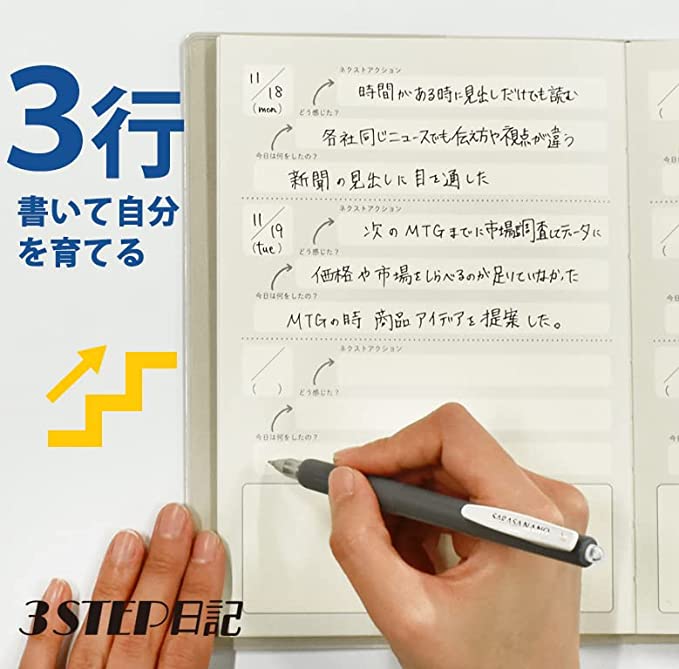 3行
書いて自分
を育てる
11/18
(mon)
ネクストアクション
時間がある時に見出しだけでも読む
どう感じた?
各社同じニュースでも伝え方や視点が違う
今日は何をしたの?
新聞の見出しに目を通した
11/19
(tue)
ネクストアクション
次のMTGまでに市場調査してデータに
どう感じた?
価格や市場をしらべるのが足りていなかった
今日は何をしたの?
MTGの時 商品アイデアを提案した。
ネクストアクション
/
( )
どう感じた?
今日は何をしたの?
SARASA NANO
3STEP日記